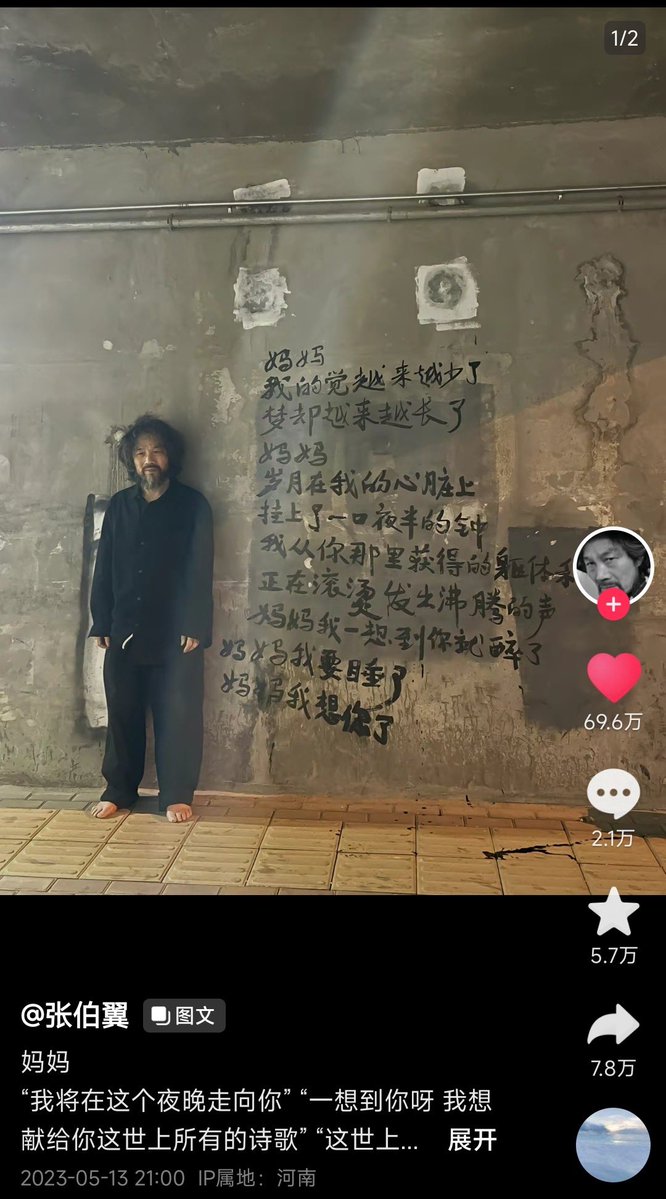 1/2
妈妈
我的觉越来越少了
梦却越来越长了
妈妈
岁月在我的心脏上
挂上了一口夜半的钟
我从你那里获得的躯体
正在滚烫发出沸腾的声
妈妈我一想到你就醉了
妈妈我要睡了
妈妈我想你了
69.6万
2.1万
5.7万
7.8万
@张伯翼 图文
妈妈
“我将在这个夜晚走向你” “一想到你呀 我想
献给你这世上所有的诗歌” “这世上... 展开
2023-05-13 21:00 IP属地：河南